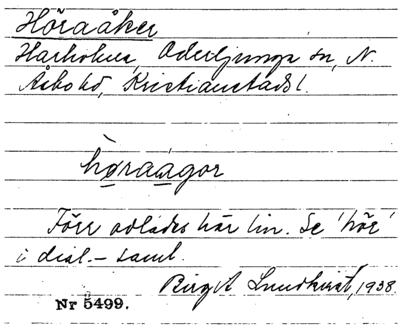 Höraåker
Harholma, Oderljunga sn, N.
Åsbo hd, Kristianstads l.
høraågor
Förr odlades här lin. Se 'hör'
i dial.-saml.
Birgit Lundkvist, 1938
Nr 5499.